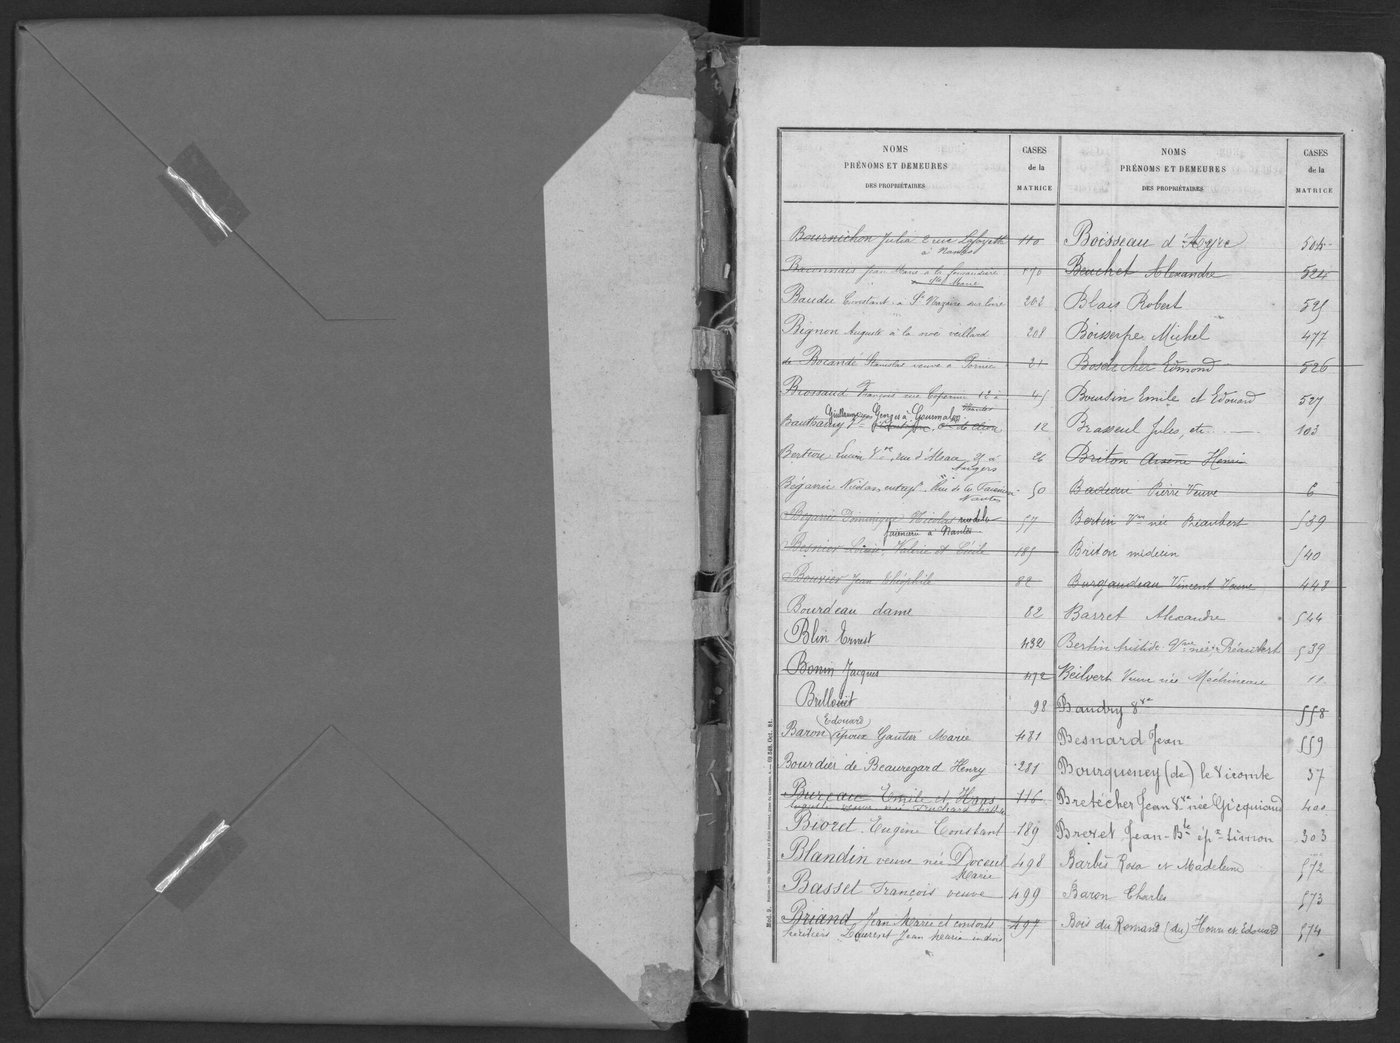 NOMS
PRÉNOMS ET DEMEURES
DES PROPRIÉTAIRES
CASES
de la
MATRICE
Bournichon Julia 2 rue Lafayette 110
à Nantes
Baconnais Jean Marie à la 170
Ste Marie
Baudu Constant à St Nazaire sur Loire 202
Bignon Auguste à la noé veillard 208
de Bocandé Stanislas veuve à Pornic 21
Brossaud François rue Copernic 12 à 45
Nantes
Georges à Gourmalon
Bauthamy Vve 12
Bertron Lucien Vve, rue d'Alsace 21 à 26
Angers
Bégarie Nicolas entrepr. Rue de la 50
Nantes
Bégarie Dominique Nicolas rue de la 57
à Nantes
Besnier Louise, Valérie et Cécile 185
Bouvier Jean Théophile 82
Bourdeau dame 82
Blin Ernest 432
Bonin Jacques 472
Brillouet 98
(Edouard)
Baron époux Gautier Marie 481
Bourdier de Beauregard Henry 281
Bureau Emile et Haas 116
Bioret Eugène Constant 189
Blandin veuve née Doceul 498
Marie
Basset François veuve 499
Briand Jean Marie et consorts 497
héritiers Jean Marie indivis
NOMS
PRÉNOMS ET DEMEURES
DES PROPRIÉTAIRES
CASES
de la
MATRICE
Boisseau d'Ayre 504
Bouchet Alexandre 524
Blais Robert 525
Boisserpe Michel 477
Bosdecher Edmond 526
Boutin Emile et Edouard 527
Brasseul Jules, etc. 103
Briton Arsène Henri
Badeau Pierre Veuve 6
Bertin Vve née Réaubert 539
Briton médecin 540
Burgaudeau Vincent Veuve 448
Barret Alexandre 544
Bertin Aristide Vve née Réaubert 539
Beilvert Veuve née Méchineau 11
Baudry Vve 558
Besnard Jean 559
Bourqueney (de) le Vicomte 37
Bretécher Jean Vve née Gicquiaud 400
Brevet Jean-Bte ép. Simon 303
Barbès Rosa et Madeleine 572
Baron Charles 573
Bois du Romand (du) Henri et Edouard 574